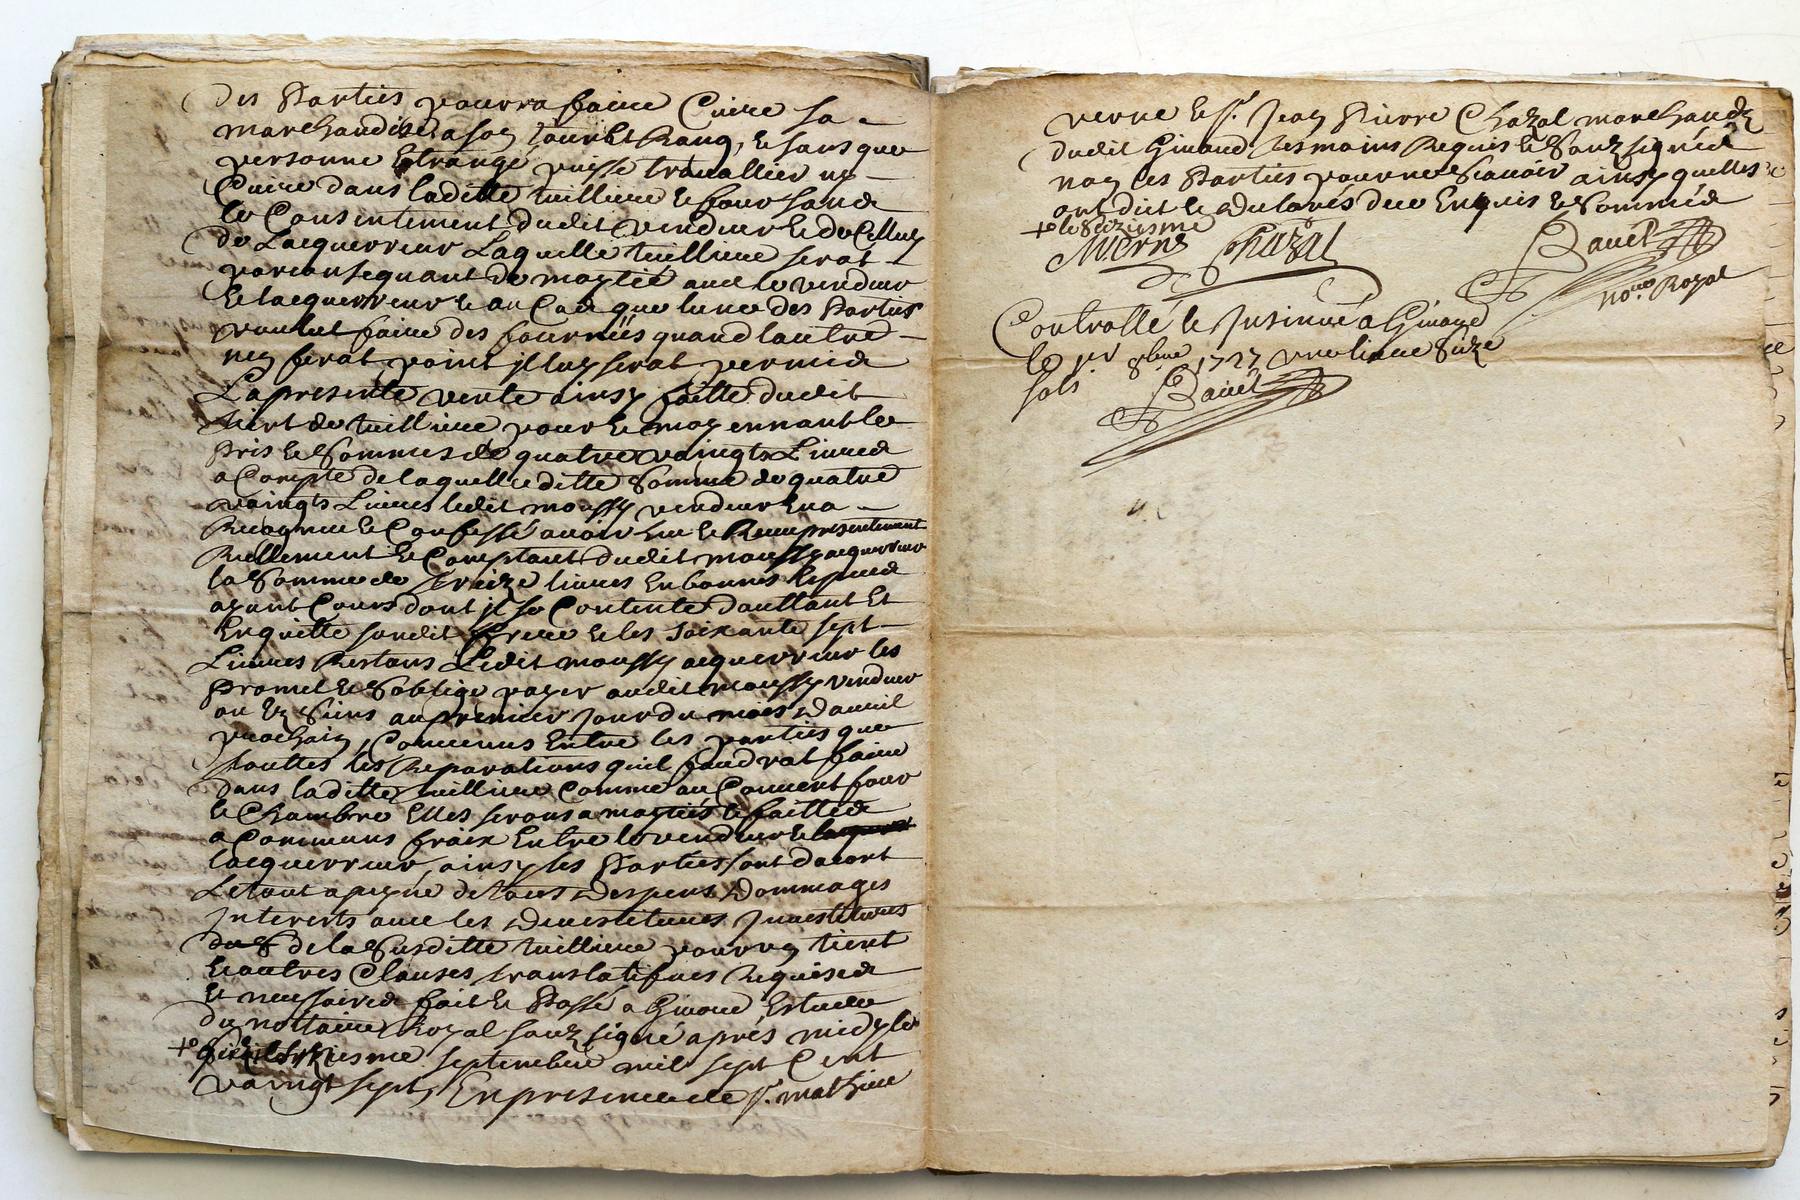 des Parties pourra faire Cuire sa
marchandise a son tour et Rang, & sans que
personne Etrange puisse travallier ny
Cuire dans laditte tuilliere & four sand
le Consentement dudit vendeur & de Celluy
de Lacquerreur Laquelle tuilliere serat
par consequant de moytié avec le vendeur
& lacquerreur & au Cas que lune des Parties
voulut faire des fournées quand lautre
ney ferat point jl luy serat permid
La presente vente ainsy faitte dudit
tiert de tuilliere pour & moyennant le
pris & Somme de quatre vaingts Livred
a Compte de laquelle ditte Somme de quatre
vaingts Livres ledit moussy vendeur En a
Recogneu & Confessé avoir Eu & Receu presentement
Reellement & Comptant dudit moussy acquerreur
la Somme de treize livres En bonnes Especed
ayant Cours dont jl se Contente dauttant Et
En quitte sondit frere & les soixante sept
Livres Restans Ledit moussy acquerreur les
Promet & Soblige payer audit moussy vendeur
ou Ez Siens au premier jour du mois Davril
prochain, Convenus Entre les parties que
touttes les Reparations quil faudrat faire
dans laditte tuilliere Comme au Couvert four
& Chambre Elles serons a moytiés & faitted
a Communs fraix Entre le vendeur &
lacquerreur, ainsy les Parties sont dacort
Le tout a peyne de tous Despens Dommages
Interests avec les Devestitures Jnvestitures
de la Susditte tuilliere pour un tiert
& autres Clauses translatifves Requised
Et necessaired fait & Passé a Estude
du nottaire Royal souz signé aprés midy le
+ septembre mil sept Cent
vaingt sept, En presence de Sr. mathieu
verne & Sr. Jean Pierre Chazal marchandz
dudit tesmoins Requis & Souz signéd
non les Parties pour ne Scavoir ainsy quelles
ont dict & Declarés de ce Enquis & Sommed
+ le Seiziesme
MVerne Chazal
Bauét
nore. Royal
Controllé & Insinué a
le 1er 8bre 1727 une livre Seize
sols Bauét